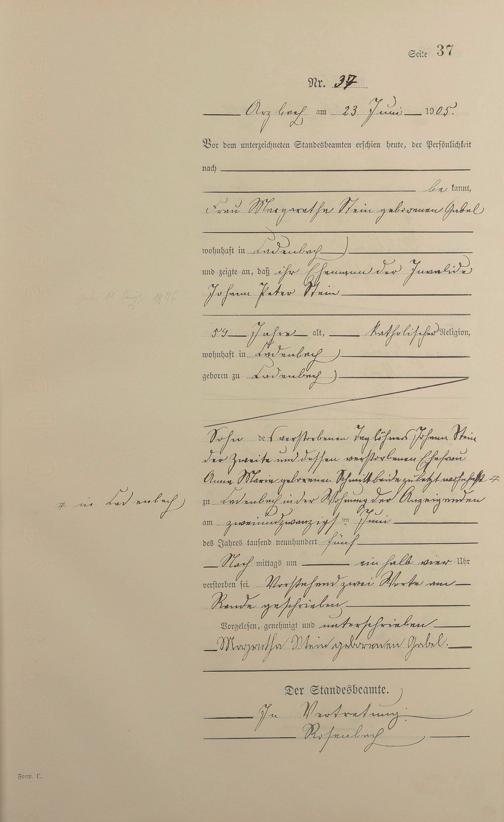 Seite 37
Nr. 37
Arzbach am 23 Juni 1905.
Vor dem unterzeichneten Standesbeamten erschien heute, der Persönlichkeit
nach
be kannt,
Frau Margaretha Stein geborenen Gabel
wohnhaft in Cadenbach
und zeigte an, daß ihr Ehemann der Invalide
Johann Peter Stein
59 Jahre alt, katholischer Religion,
wohnhaft in Cadenbach
geboren zu Cadenbach
Sohn des verstorbenen Taglöhners Johann Stein
der Zweite und dessen verstorbenen Ehefrau
Anna Maria geborenen zuletzt wohnhaft
in Cadenbach
zu Cadenbach in der Wohnung der Anzeigenden
am zweiundzwanzigsten Juni
des Jahres tausend neunhundert fünf
Nach mittags um ein halb vier Uhr
verstorben sei. Vorstehend zwei Worte am
Rande geschrieben.
Vorgelesen, genehmigt und unterschrieben
Margretha Stein geborenen Gabel.
Der Standesbeamte.
In Vertretung:
Rosenbach
Form. C.